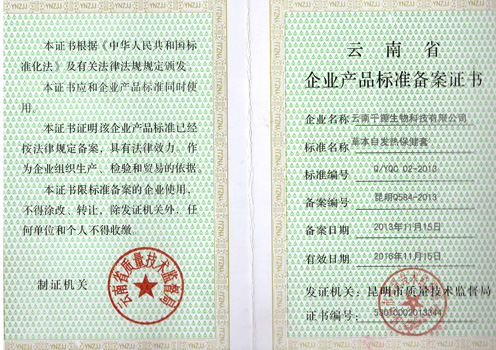 本证书根据《中华人民共和国标
准化法》及有关法律法规规定颁发。
本证书应和企业产品标准同时使
用。
本证书证明该企业产品标准已经
按法律规定备案，具有法律效力，作
为企业组织生产、检验和贸易的依据。
本证书限标准备案的企业使用，
不得涂改、转让，除发证机关外，任
何单位和个人不得收缴。
制证机关
云南省质量技术监督局
云南省
企业产品标准备案证书
企业名称 云南千 生物科技有限公司
标准名称 草本自发热保健套
标准编号 Q/YQC 02-2013
备案编号 昆明Q584-2013
备案日期 2013年11月15日
有效日期 2016年11月15日
发证机关：昆明市质量技术监督局
证书编号：53010002013344